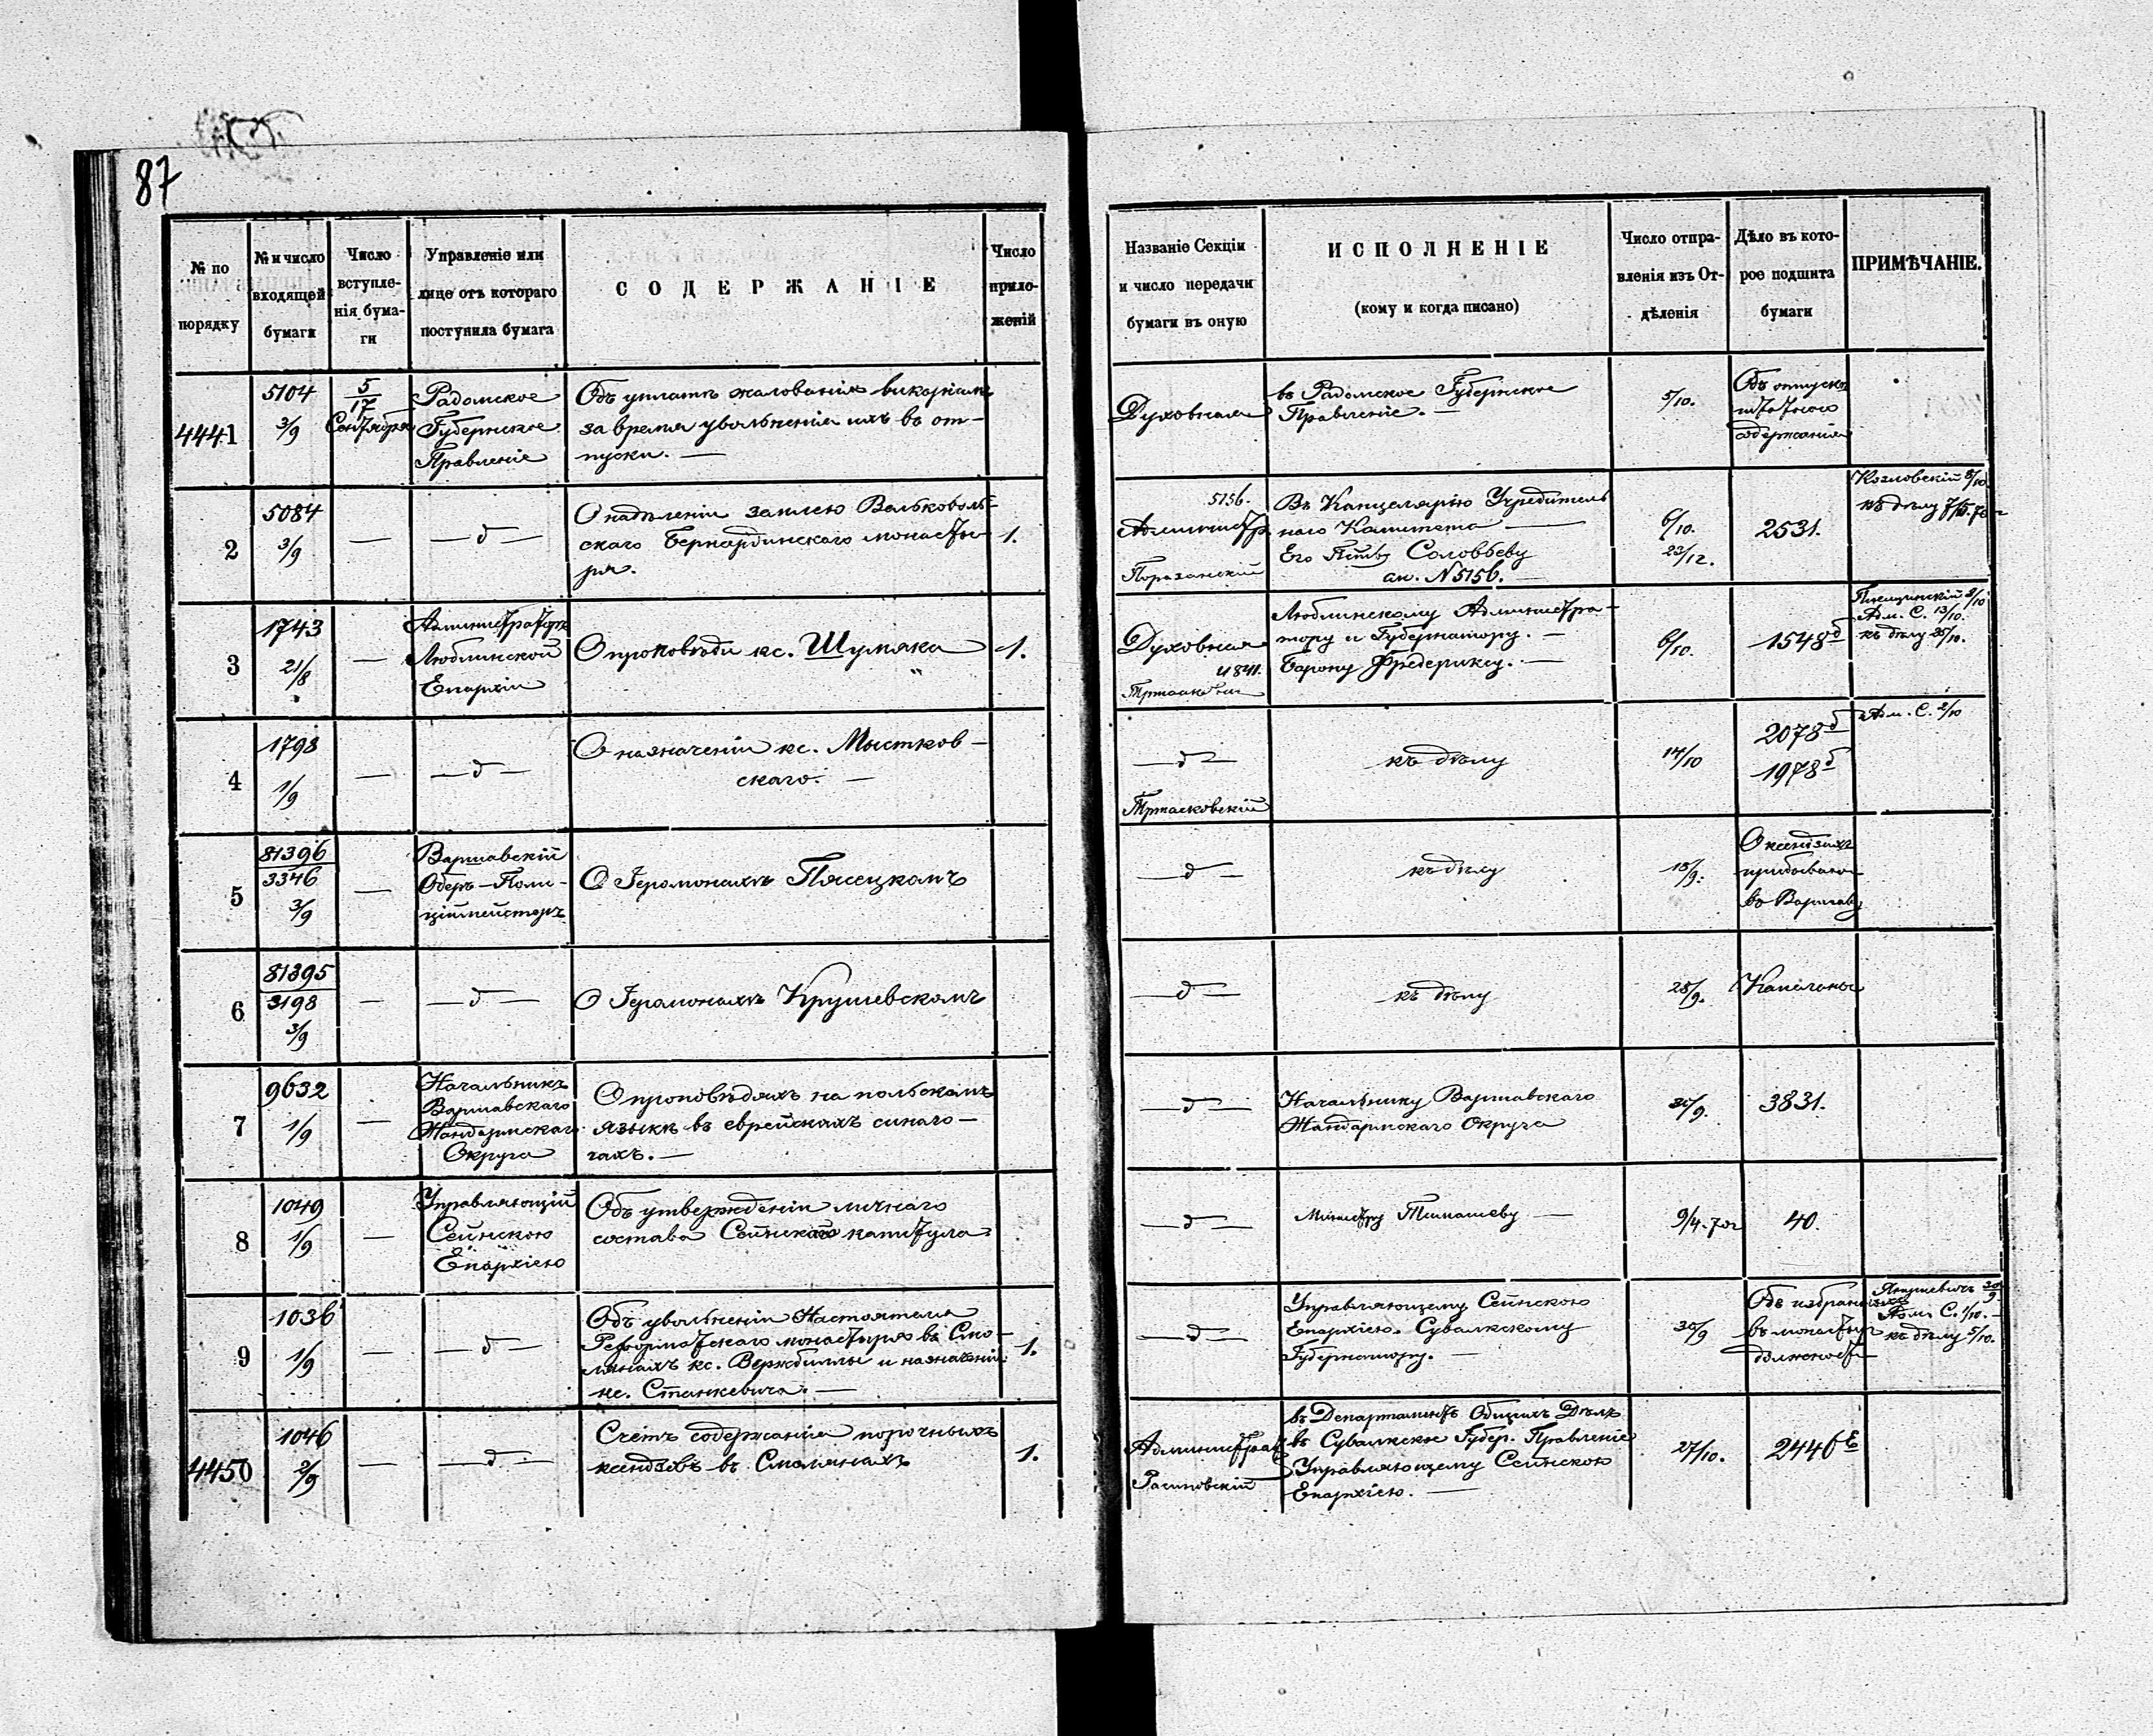 87
№ по порядку
№ и число входящей бумаги
Число вступле-нія бума-ги
Управленіе или лице отъ котораго поступила бумага
СОДЕРЖАНІЕ
Число прило-женій
Названіе Секціи и число передачи бумаги въ оную
ИСПОЛНЕНІЕ
(кому и когда писано)
Число отпра-вленія изъ От-дѣленія
Дѣло въ кото-рое подшита бумаги
ПРИМѢЧАНІЕ.
4441
5104
3/9
5/17
Сентября
Радомское
Губернское
Правленіе
Объ уплатѣ жалованія викаріямъ
за время увольненія ихъ въ от-
пуски. —
Духовная
въ Радомское Губернское
Правленіе. —
5/10.
Объ отпускѣ
штатнаго
содержанія
2
5084
3/9
—
— д —
О надѣленіи землею Вельковоль-
скаго Бернардинскаго монасты-
ря.
1.
5156.
Административ.
Въ Канцелярію Учредитель
наго Комитета —
Его Пр-ству Соловьеву
ан. N 5156. —
6/10.
23/12.
2531.
Козловскій 8/10
къ дѣлу
3
1743
21/8
—
Администраторъ
Люблинской
Епархіи
О проповѣди кс. Шумяка
1.
Духовная
4841.
Люблинскому Администра-
тору и Губернатору. —
Барону Фредериксу. —
6/10.
1548 д
Адм. С. 13/10.
къ дѣлу 25/10.
4
1798
1/9
—
— д —
О назначеніи кс. Мыстков-
скаго. —
— д —
къ дѣлу
14/10
2078 д
1978 д
Адм. С. 2/10
5
81396
3346
3/9
—
Варшавскій
Оберъ-Поли-
ціймейстеръ
О Іеромонахѣ Плсецкомъ
— д —
къ дѣлу
18/9.
О ксендзахъ
въ Варшаву
6
81395
3198
3/9
—
— д —
О Іеромонахѣ Крушевскомъ
— д —
къ дѣлу
28/9.
7
9632
1/9
—
Начальникъ
Варшавскаго
Жандармскаго
Округа
О проповѣдяхъ на польскомъ
языкѣ въ еврейскихъ синаго-
гахъ. —
— д —
Начальнику Варшавскаго
Жандармскаго Округа
30/9.
3831.
8
1049
1/9
—
Управляющій
Сейнскою
Епархіею
Объ утвержденіи личнаго
состава Сейнскаго капитула
— д —
Министру Тимашеву —
9/4.
40.
9
1036
1/9
—
— д —
Объ увольненіи Настоятеля
Реформатскаго монастыря въ Смо-
лянахъ кс. Вержбиллы и назначеніи
кс. Станкевича. —
1.
— д —
Управляющему Сейнскою
Епархіею. Сувалкскому
Губернатору. —
30/9
Объ избраніи
въ монастыр.
должности
Адм. С. 1/10. —
къ дѣлу 5/10.
4450
1046
2/9
—
— д —
Счетъ содержанія порочныхъ
ксендзовъ въ Смолянахъ
1.
Административ.
въ Департаментъ Общихъ Дѣлъ
въ Сувалкское Губер. Правленіе
Управляющему Сейнскою
Епархіею. —
27/10.
2446